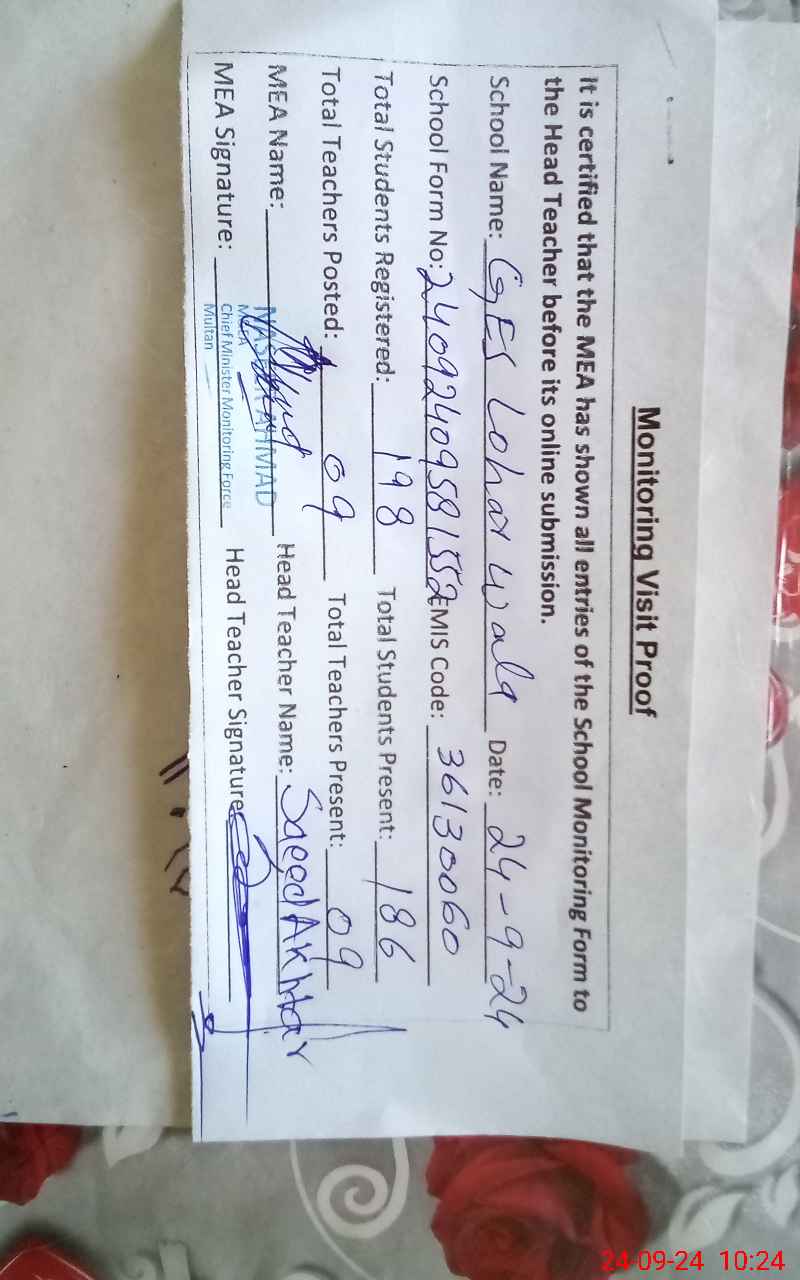 Monitoring Visit Proof
It is certified that the MEA has shown all entries of the School Monitoring Form to
the Head Teacher before its online submission.
School Name: GES Lohar Wala Date: 24-9-24
School Form No: 24092409581552 EMIS Code: 36130060
Total Students Registered: 198 Total Students Present: 186
Total Teachers Posted: 09 Total Teachers Present: 09
MEA Name: AHMAD Head Teacher Name: Saeed Akhtar
MEA
MEA Signature: Chief Minister Monitoring Force Head Teacher Signature:
Multan
24-09-24 10:24